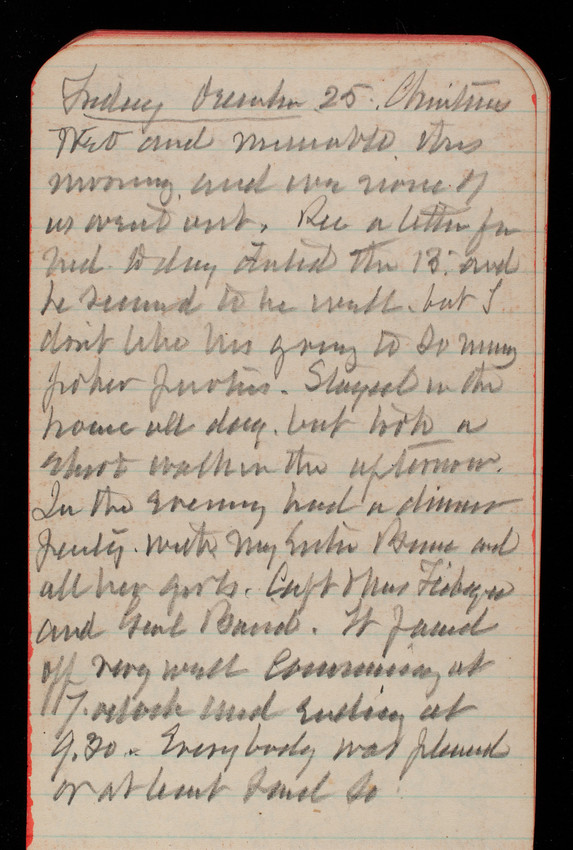 Friday December 25. Christmas
Wet and miserable this
morning and we none of
us went out. Rec a letter from
today dated the 13. and
he seemed to be well. but I
don't like his going to so many
poker parties. Stayed in the
house all day. but took a
short walk in the afternoon.
In the evening had a dinner
party. with my Sister and
all her girls. Capt & Mrs
and Genl Baird. It passed
off very well Commencing at
7. oclock and ending at
9.30. Everybody was pleased
or at least said so